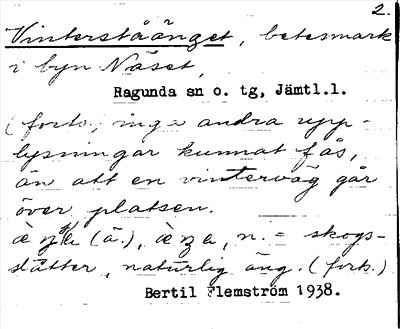 2.
Vinterstååänget, betesmark
i byn Näset,
Ragunda sn o. tg, Jämtl.l.
(forts.; inga andra upp-
lysningar kunnat fås,
än att en vinterväg går
över platsen.
(ä.), n. = skogs-
slåtter, naturlig äng. (forts.)
Bertil Flemström 1938.